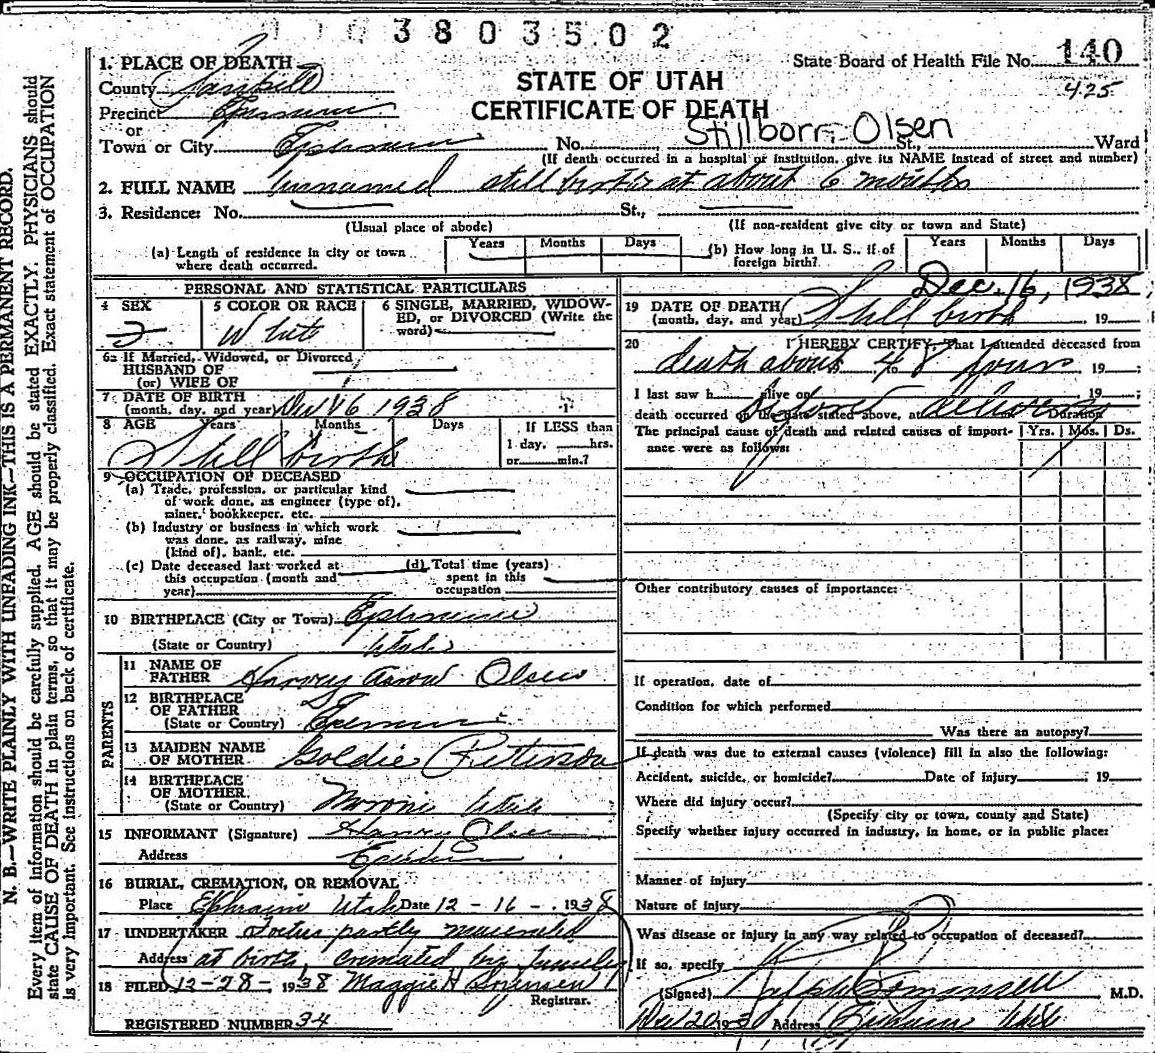 3803502
1. PLACE OF DEATH
State Board of Health File No. 140
County Sanpete
STATE OF UTAH
425
Precinct Ephraim
CERTIFICATE OF DEATH
or
Stillborn Olsen
Town or City Ephraim No. St., Ward
(If death occurred in a hospital or institution, give its NAME instead of street and number)
2. FULL NAME unnamed still birth at about 6 months
3. Residence: No. St.,
(Usual place of abode) (If non-resident give city or town and State)
(a) Length of residence in city or town where death occurred. Years Months Days (b) How long in U. S., if of foreign birth? Years Months Days
PERSONAL AND STATISTICAL PARTICULARS
4 SEX F
5 COLOR OR RACE White
6 SINGLE, MARRIED, WIDOW-
ED, or DIVORCED (Write the
word)
6a If Married, Widowed, or Divorced
HUSBAND OF
(or) WIFE OF
7 DATE OF BIRTH
(month, day, and year) Dec 16 1938
8 AGE Years Months Days If LESS than
1 day, hrs.
or min.?
Still birth
9 OCCUPATION OF DECEASED
(a) Trade, profession, or particular kind
of work done, as engineer (type of),
miner, bookkeeper, etc.
(b) Industry or business in which work
was done, as railway, mine
(kind of), bank, etc.
(c) Date deceased last worked at
this occupation (month and
year)
(d) Total time (years)
spent in this
occupation
10 BIRTHPLACE (City or Town) Ephraim
(State or Country) Utah
PARENTS
11 NAME OF
FATHER Harvey Olsen
12 BIRTHPLACE
OF FATHER
(State or Country) Ephraim
13 MAIDEN NAME
OF MOTHER Goldie Peterson
14 BIRTHPLACE
OF MOTHER
(State or Country) Moroni Utah
15 INFORMANT (Signature) Harvey Olsen
Address Ephraim
16 BURIAL, CREMATION, OR REMOVAL
Place Ephraim Utah Date 12 - 16 - 1938
17 UNDERTAKER Foetus partly macerated
Address at birth, cremated by family
18 FILED 12-28-, 1938 Maggie H Sorensen
Registrar.
REGISTERED NUMBER 34
Dec. 16, 1938
19 DATE OF DEATH
(month, day, and year) Still birth 19
20 I HEREBY CERTIFY, That I attended deceased from
death about 48 hours 19 ;
I last saw h alive on 19 ;
before delivery
death occurred on the date stated above, at Duration
The principal cause of death and related causes of import-
ance were as follows: Yrs. Mos. Ds.
Other contributory causes of importance:
If operation, date of
Condition for which performed
Was there an autopsy?
If death was due to external causes (violence) fill in also the following:
Accident, suicide, or homicide? Date of injury , 19
Where did injury occur?
(Specify city or town, county and State)
Specify whether injury occurred in industry, in home, or in public place:
Manner of injury
Nature of injury
Was disease or injury in any way related to occupation of deceased?
If so, specify
(Signed) Ralph M.D.
Dec 20 19 Address Ephraim Utah
N. B.—WRITE PLAINLY WITH UNFADING INK—THIS IS A PERMANENT RECORD.
Every item of information should be carefully supplied. AGE should be stated EXACTLY. PHYSICIANS should
state CAUSE OF DEATH in plain terms, so that it may be properly classified. Exact statement of OCCUPATION
is very important. See instructions on back of certificate.